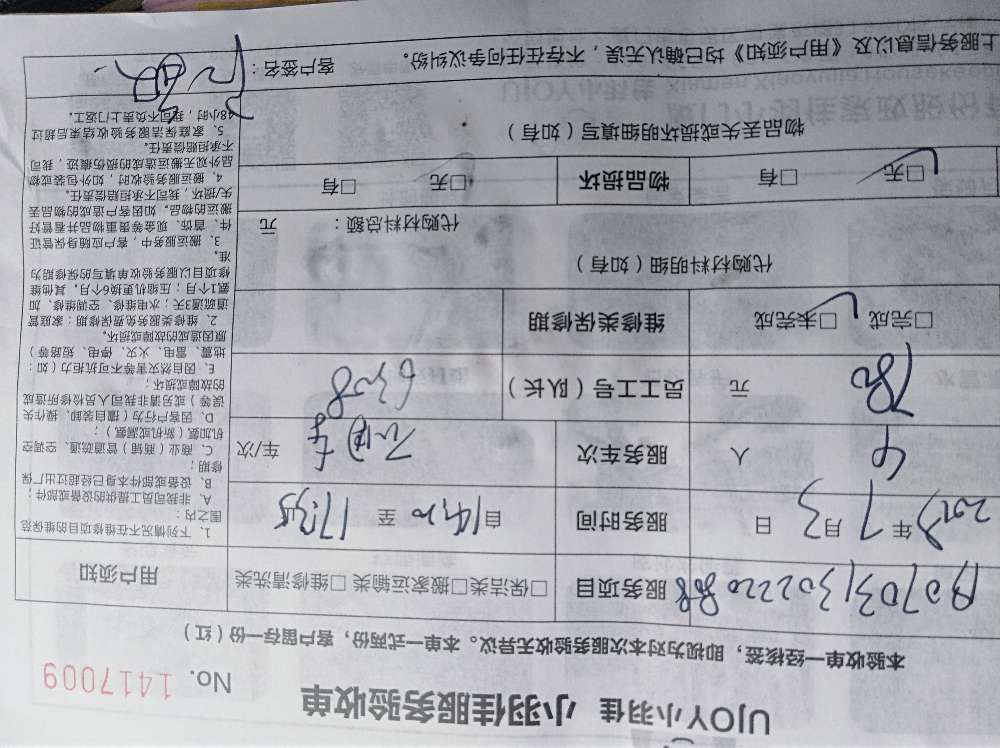 UJOY小羽佳 小羽佳服务验收单
No. 1417009
本验收单一经核签，即视为对本次服务验收无异议。本单一式两份，客户留存一份（红）
服务项目 □保洁类□搬家运输类□维修清洗类
年 7 月 3 日 服务时间 自 14:20 至 17:35
人 服务车次 不用车 车/次
780 元 员工工号（队长） 6328
□完成 □未完成 维修类保修期
代购材料明细（如有）
代购材料总额： 元
□无 □有 物品损坏 □无 □有
物品丢失或损坏明细填写（如有）
上服务信息以及《用户须知》均已确认无误，不存在任何争议纠纷。 客户签名：
用户须知
1、下列情况不在维修项目的维保范
围之内：
A、非我司员工提供的设备或部件；
B、设备或部件本身已经超过出厂保
修期；
C、商业（商铺）管道疏通、空调空
机加氨（新机或漏氨）；
D、因客户行为（擅自装卸、操作失
误等）或另请非我司人员检修所造成
的故障或损坏；
E、因自然灾害等不可抗拒力（如：
地震、雷电、火灾、停电、短路等）
原因造成的故障或损坏。
2、维修类服务免费保修期：家庭管
道疏通3天；水电维修、空调维修、加
氨1个月；压缩机更换6个月，其他维
修项目以服务验收单填写的保修期为
准。
3、搬运服务中，客户应随身保管证
件、首饰、现金等贵重物品并看管好
搬运的物品，如因客户造成的物品丢
失/损坏，我司不承担赔偿责任。
4、搬运服务验收时，如外包装或物
品外观无搬运造成的损伤痕迹，我司
不承担赔偿责任。
5、家庭保洁服务验收结束后超过
48小时，我司不负责上门返工。